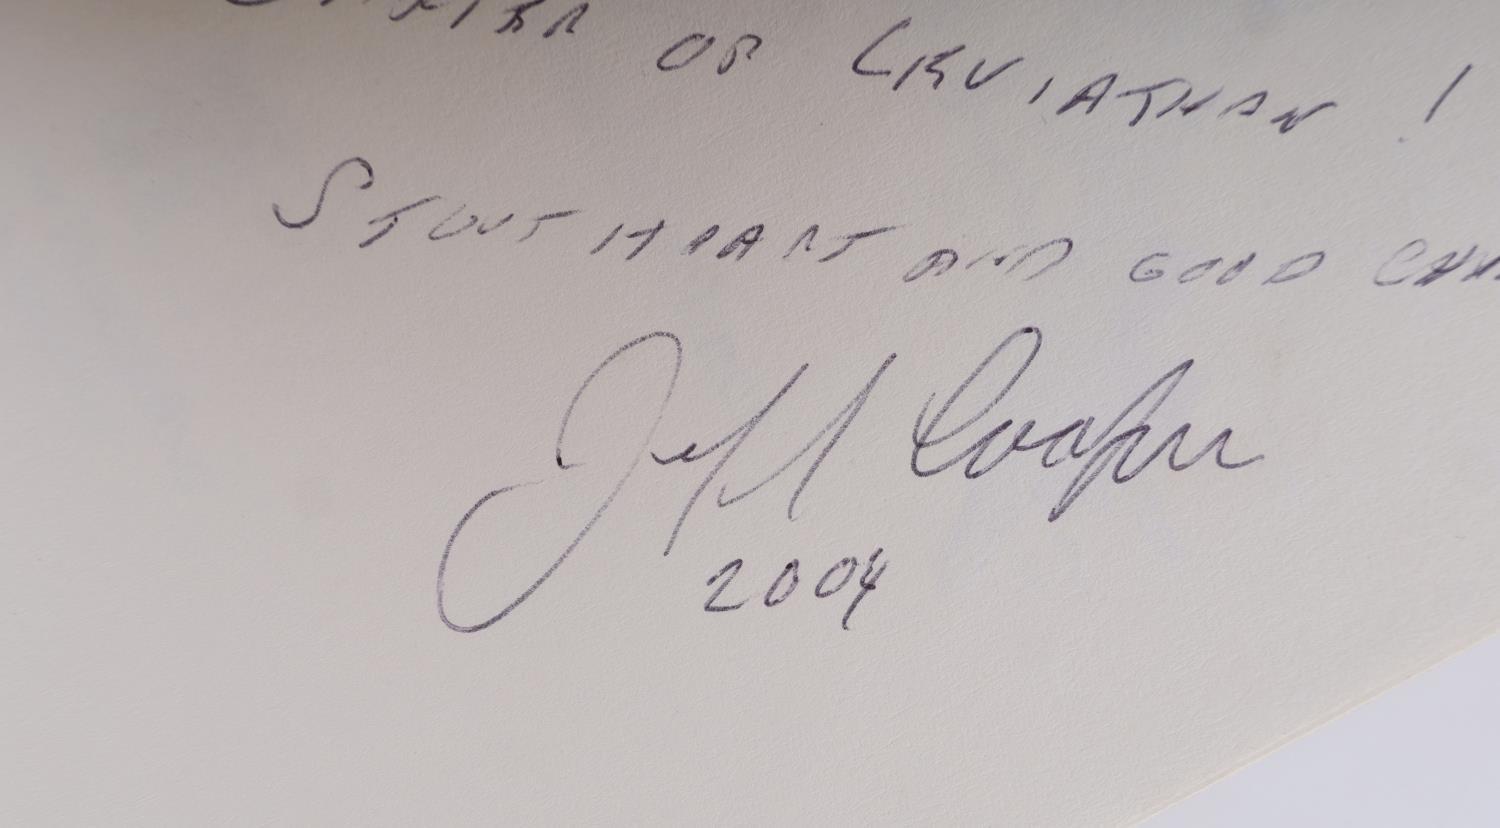 OF LEVIATHAN!
STOUT HEART AND GOOD
Jeff Cooper
2004